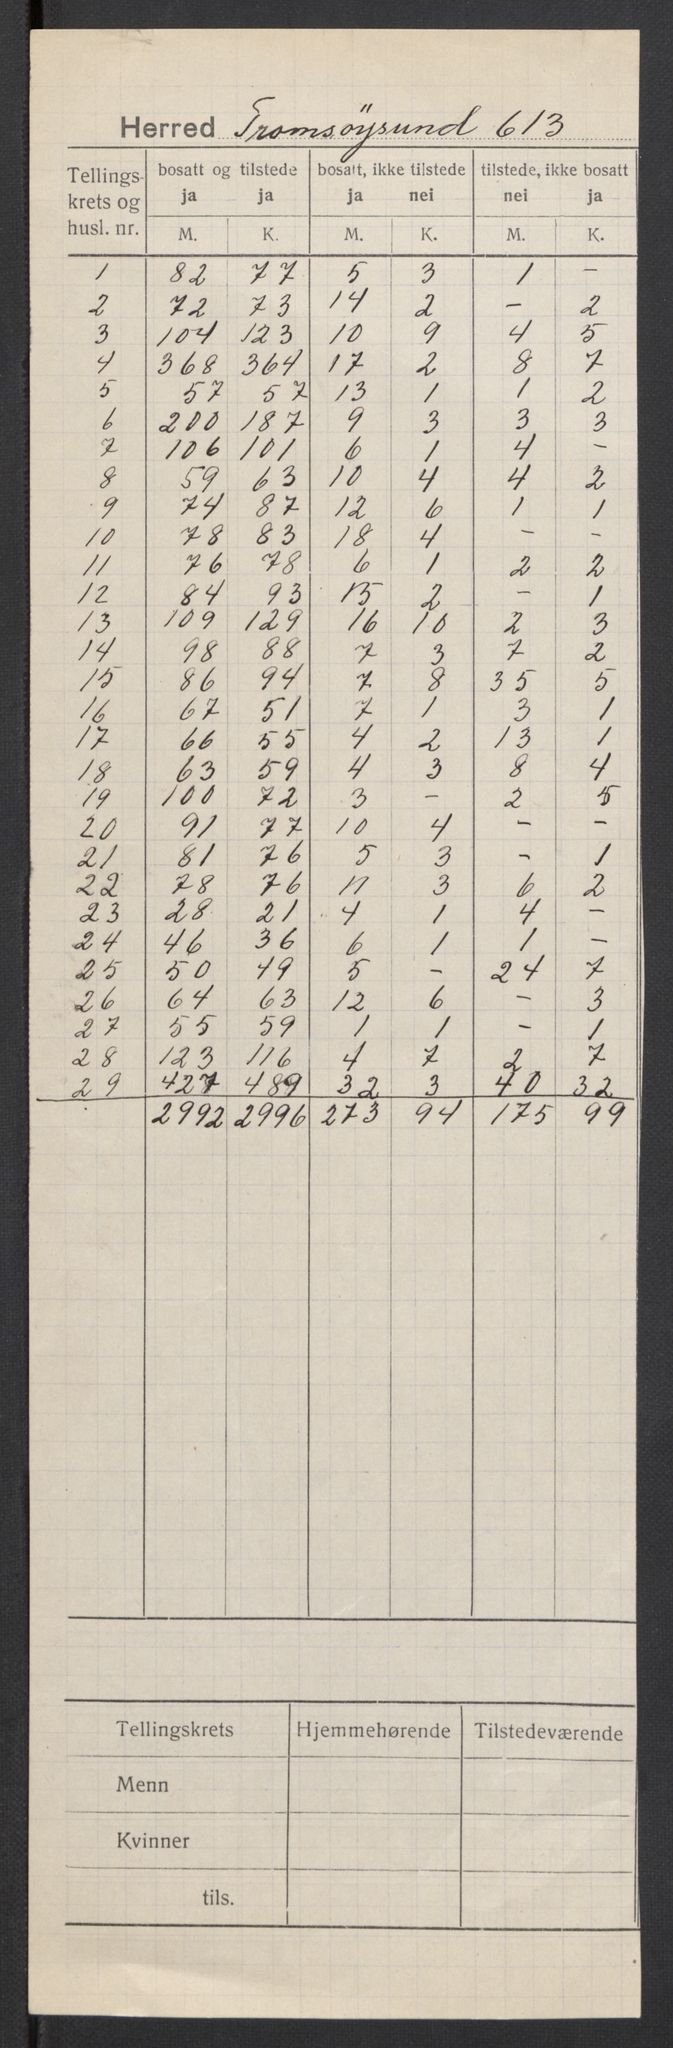 Herred Tromsöysund 613
Tellings- krets og husl. nr. bosatt og tilstede bosatt, ikke tilstede tilstede, ikke bosatt
ja ja ja nei nei ja
M. K. M. K. M. K.
1 82 77 5 3 1 -
2 72 73 14 2 - 2
3 104 123 10 9 4 5
4 368 364 17 2 8 7
5 57 57 13 1 1 2
6 200 187 9 3 3 3
7 106 101 6 1 4 -
8 59 63 10 4 4 2
9 74 87 12 6 1 1
10 78 83 18 4 - -
11 76 78 6 1 2 2
12 84 93 15 2 - 1
13 109 129 16 10 2 3
14 98 88 7 3 7 2
15 86 94 7 8 35 5
16 67 51 7 1 3 1
17 66 55 4 2 13 1
18 63 59 4 3 8 4
19 100 72 3 - 2 5
20 91 77 10 4 - -
21 81 76 5 3 - 1
22 78 76 11 3 6 2
23 28 21 4 1 4 -
24 46 36 6 1 1 -
25 50 49 5 - 24 7
26 64 63 12 6 - 3
27 55 59 1 1 - 1
28 123 116 4 7 2 7
29 427 489 32 3 40 32
2992 2996 273 94 175 99
Tellingskrets Hjemmehørende Tilstedeværende
Menn
Kvinner
tils.